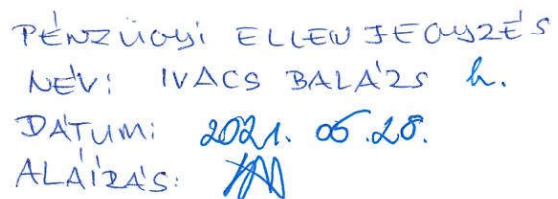 PÉNZÜGYI ELLENJEGYZÉS
NÉV: IVACS BALÁZS h.
DÁTUM: 2021. 05.28.
ALÁÍRÁS: